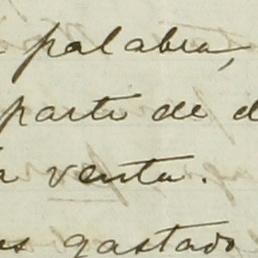 palabra,
parte de
venta.
gastado